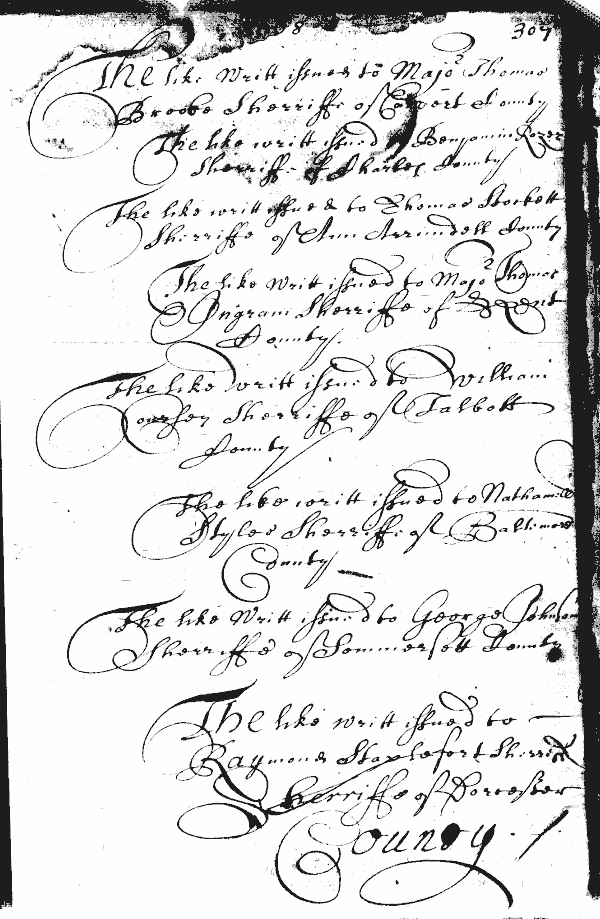 8 307
The like Writt issued to Majo.r Thomas
Brooke Sherriffe of Calvert County
The like writt issued to Benjamin Rozer
Sherriffe of Charles County
The like writt issued to Thomas Stockett
Sherriffe of Ann Arrundell County
The like Writt issued to Majo.r Thomas
Ingram Sherriffe of Kent
County.
The like writt issued to William
Coursey Sherriffe of Talbott
County
The like writt issued to Nathaniell
Styles Sherriffe of Baltimore
County
The like Writt issued to George Johnson
Sherriffe of Sommersett County
The like writt issued to
Raymond Staplefort Sherriffe
Sherriffe of Dorcester
County.